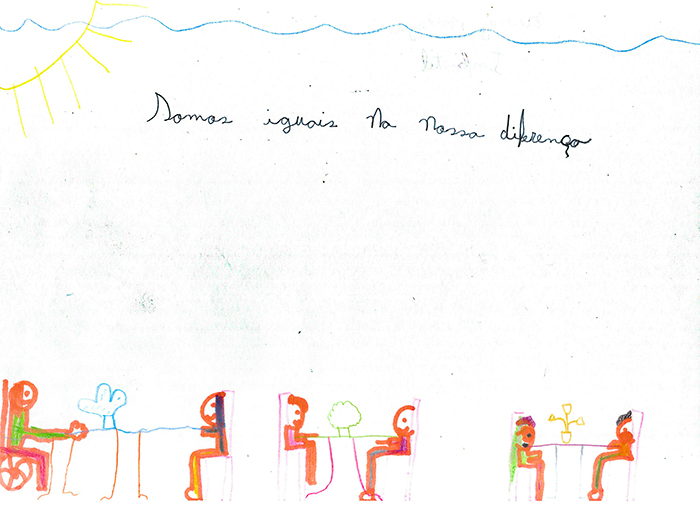 Somos iguais na nossa diferença